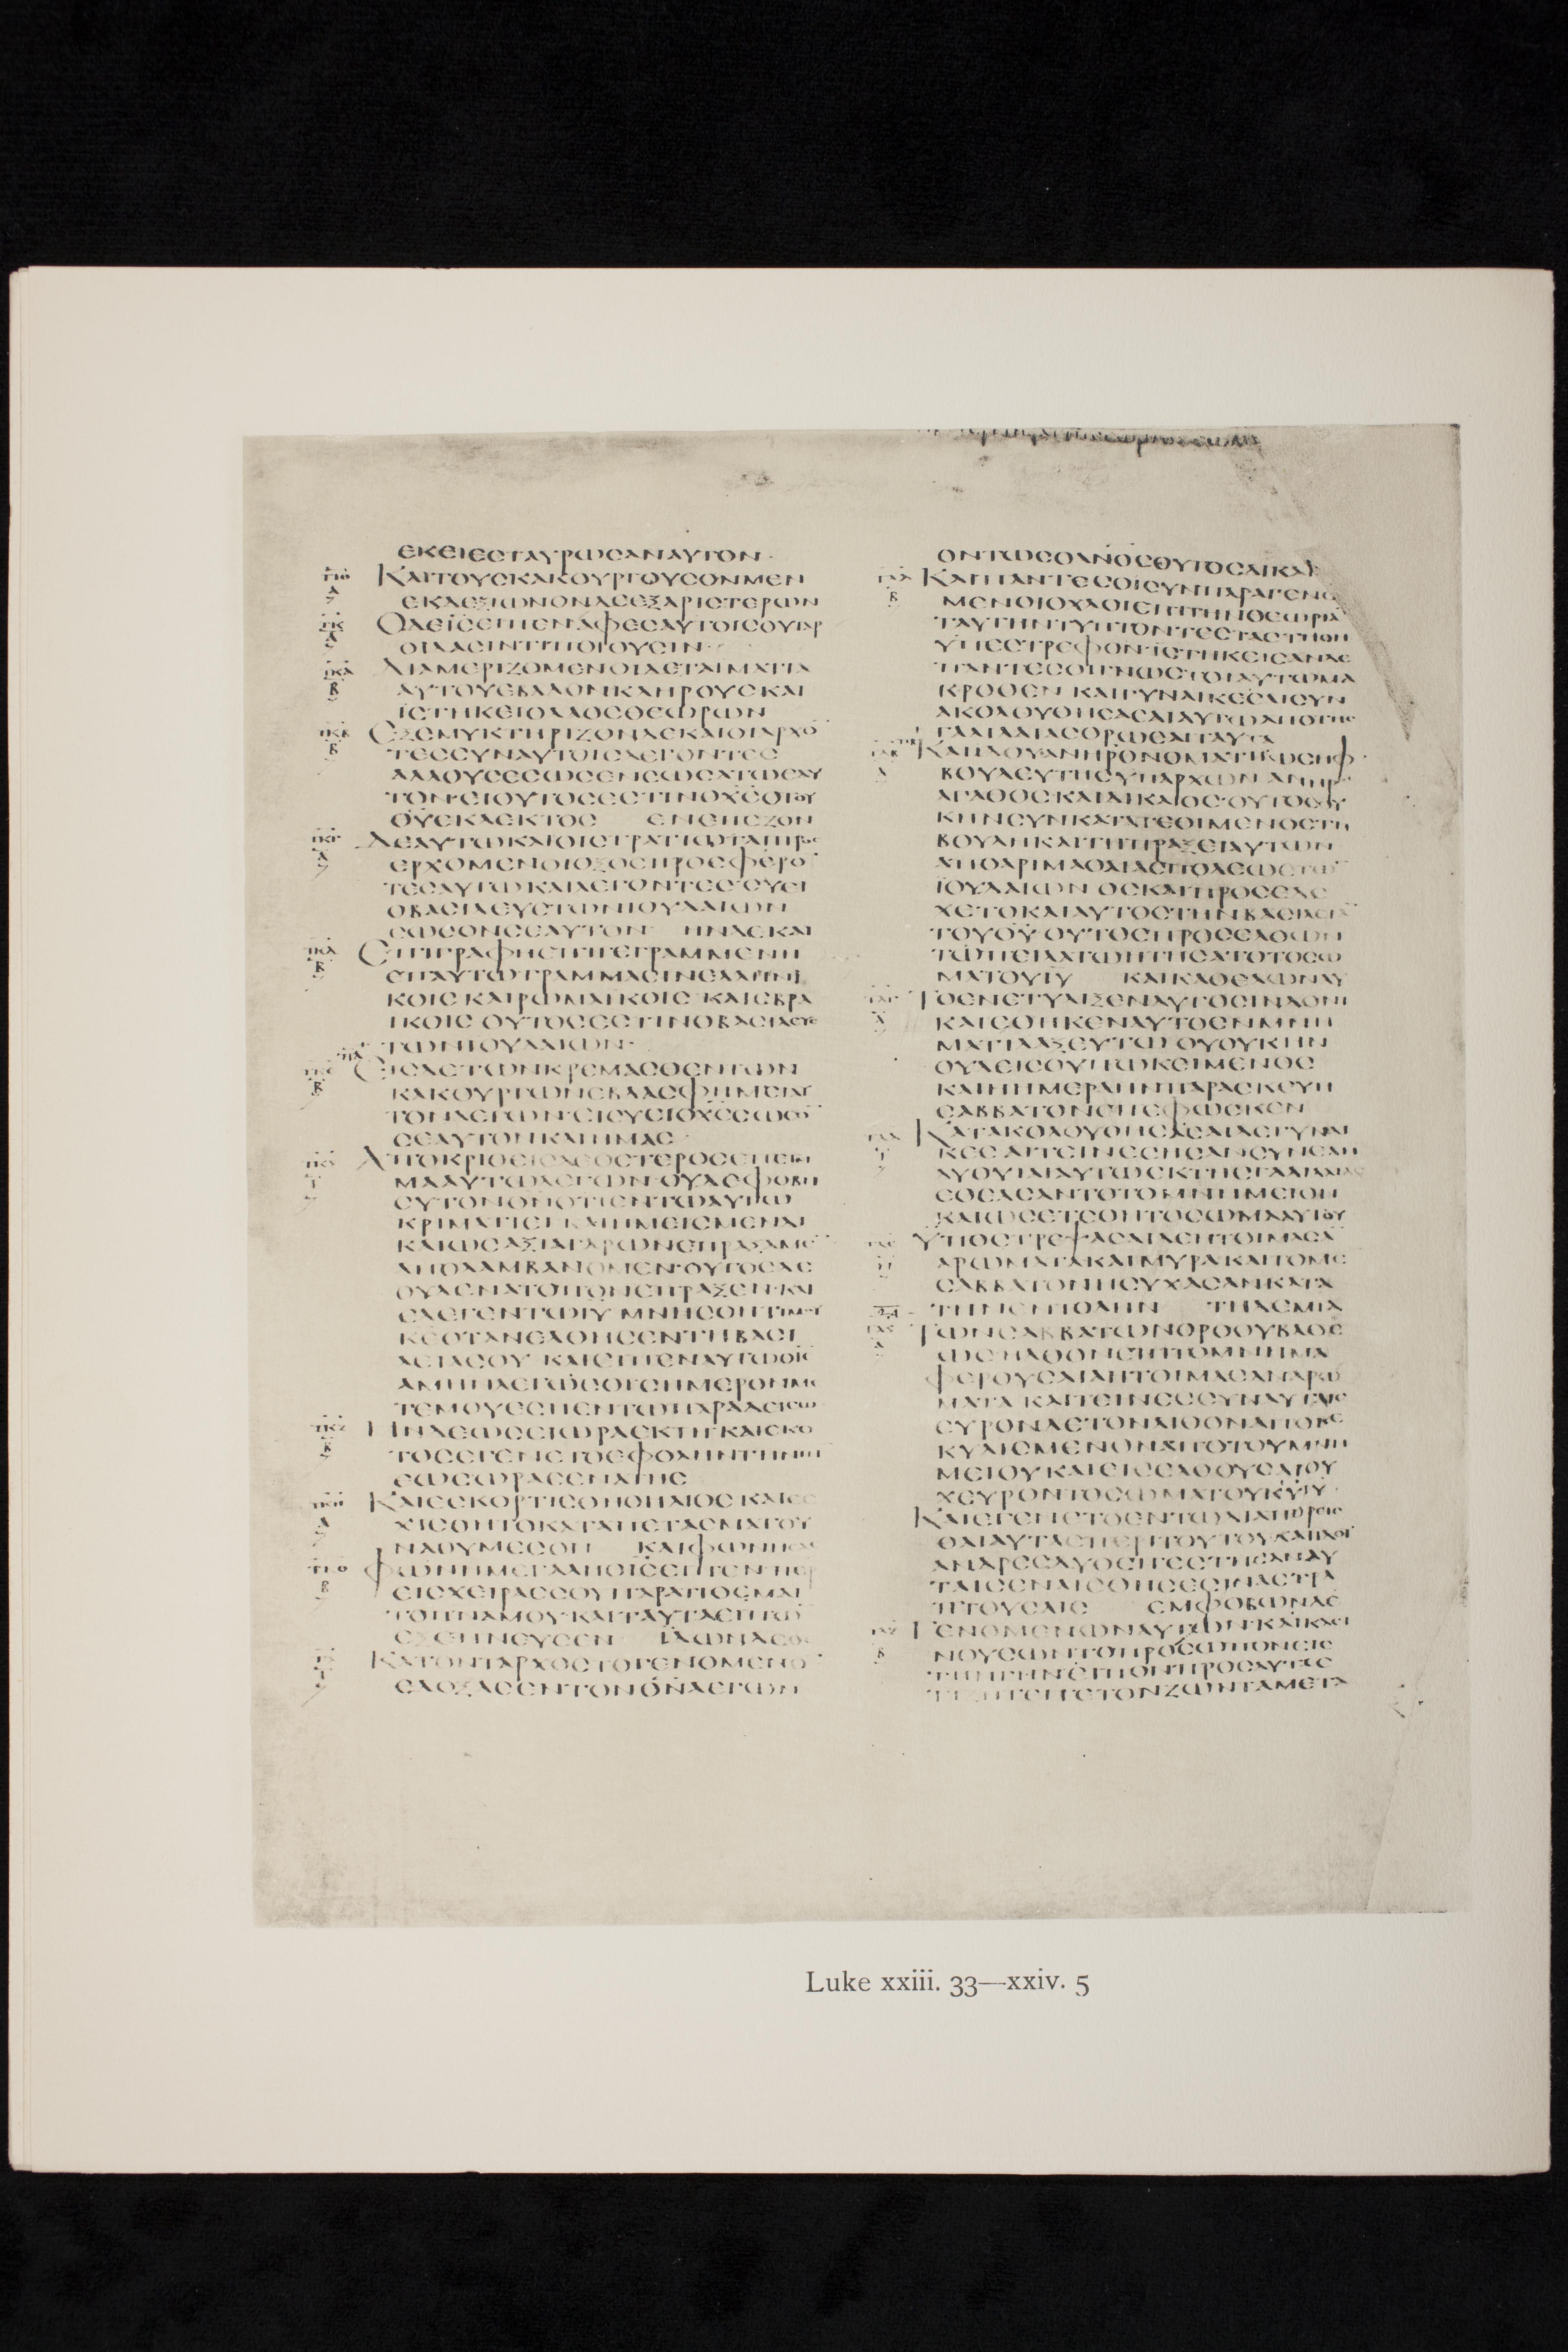 ΕΚΕΙΕϹΤΑΥΡΩϹΑΝΑΥΤΟΝ·
ΚΑΙΤΟΥϹΚΑΚΟΥΡΓΟΥϹΟΝΜΕΝ
ΕΚΔΕΞΙΩΝΟΝΔΕΕΞΑΡΙϹΤΕΡΩΝ
ΟΔΕΙϹΕΙΠΕΝΑΦΕϹΑΥΤΟΙϹΟΥΓΑΡ
ΟΙΔΑϹΙΝΤΙΠΟΙΟΥϹΙΝ·
ΔΙΑΜΕΡΙΖΟΜΕΝΟΙΔΕΤΑΙΜΑΤΙΑ
ΑΥΤΟΥΕΒΑΛΟΝΚΛΗΡΟΥϹΚΑΙ
ΙϹΤΗΚΕΙΟΛΑΟϹΘΕΩΡΩΝ
ΕΞΕΜΥΚΤΗΡΙΖΟΝΔΕΚΑΙΟΙΑΡΧΟ
ΤΕϹϹΥΝΑΥΤΟΙϹΛΕΓΟΝΤΕϹ
ΑΛΛΟΥϹΕϹΩϹΕΝϹΩϹΑΤΩΕΑΥ
ΤΟΝ·ΕΙΟΥΤΟϹΕϹΤΙΝΟΧϹΟΤΟΥ
ΘΥΕΚΛΕΚΤΟϹ ΕΝΕΠΕΖΟΝ
ΔΕΑΥΤΩΚΑΙΟΙϹΤΡΑΤΙΩΤΑΙΠΡΟϹ
ΕΡΧΟΜΕΝΟΙΟΞΟϹΠΡΟϹΦΕΡΟ
ΤΕϹΑΥΤΩΚΑΙΛΕΓΟΝΤΕϹ·ΕΥϹΙ
ΟΒΑϹΙΛΕΥϹΤΩΝΙΟΥΔΑΙΩΝ
ϹΩϹΟΝϹΕΑΥΤΟΝ· ΗΝΔΕΚΑΙ
ΕΠΙΓΡΑΦΗΕΠΙΓΕΓΡΑΜΜΕΝΗ
ΕΠΑΥΤΩΓΡΑΜΜΑϹΙΝΕΛΛΗΝΙ
ΚΟΙϹΚΑΙΡΩΜΑΙΚΟΙϹ·ΚΑΙΕΒΡΑ
ΙΚΟΙϹ ΟΥΤΟϹΕϹΤΙΝΟΒΑϹΙΛΕΥϹ
ΤΩΝΙΟΥΔΑΙΩΝ·
ΕΙϹΔΕΤΩΝΚΡΕΜΑϹΘΕΝΤΩΝ
ΚΑΚΟΥΡΓΩΝΕΒΛΑϹΦΗΜΕΙΑΥ
ΤΟΝΛΕΓΩΝ·ΕΙϹΥΕΙΟΧϹϹΩϹΟ
ϹΕΑΥΤΟΝΚΑΙΗΜΑϹ·
ΑΠΟΚΡΙΘΕΙϹΔΕΟΕΤΕΡΟϹΕΠΕΤΙ
ΜΑΑΥΤΩΛΕΓΩΝ·ΟΥΔΕΦΟΒΗ
ϹΥΤΟΝΘΝΟΤΙΕΝΤΩΑΥΤΩ
ΚΡΙΜΑΤΙΕΙ ΚΑΙΗΜΕΙϹΜΕΝΔΙ
ΚΑΙΩϹΑΞΙΑΓΑΡΩΝΕΠΡΑΞΑΜΕ
ΑΠΟΛΑΜΒΑΝΟΜΕΝ·ΟΥΤΟϹΔΕ
ΟΥΔΕΝΑΤΟΠΟΝΕΠΡΑΞΕΝ·ΚΑΙ
ΕΛΕΓΕΝΤΩΙΥ ΜΝΗϹΘΗΤΙΜΟΥ
ΚΕΟΤΑΝΕΛΘΗϹΕΝΤΗΒΑϹΙ
ΛΕΙΑϹΟΥ· ΚΑΙΕΙΠΕΝΑΥΤΩΟΙϹ
ΑΜΗΝΛΕΓΩϹΟΙϹΗΜΕΡΟΝΜΕ
ΤΕΜΟΥΕϹΗΕΝΤΩΠΑΡΑΔΕΙϹΩ
ΗΝΔΕΩϹΕΙΩΡΑΕΚΤΗΚΑΙϹΚΟ
ΤΟϹΕΓΕΝΕΤΟΕΦΟΛΗΝΤΗΝΓΗ
ΕΩϹΩΡΑϹΕΝΑΤΗϹ
ΚΑΙΕϹΚΟΡΤΙϹΘΗΟΗΛΙΟϹ·ΚΑΙΕϹ
ΧΙϹΘΗΤΟΚΑΤΑΠΕΤΑϹΜΑΤΟΥ
ΝΑΟΥΜΕϹΟΝ ΚΑΙΦΩΝΗϹΑϹ
ΦΩΝΗΜΕΓΑΛΗΟΙϹΕΙΠΕΝ·ΠΕΡ
ΕΙϹΧΕΙΡΑϹϹΟΥΠΑΡΑΤΙΘΕΜΑΙ
ΤΟΠΝΑΜΟΥ·ΚΑΙΤΑΥΤΑΕΙΠΩ
ΕΞΕΠΝΕΥϹΕΝ ΙΔΩΝΔΕΟΕ
ΚΑΤΟΝΤΑΡΧΟϹΤΟΓΕΝΟΜΕΝΟ
ΕΔΟΞΑϹΕΝΤΟΝΘΝΛΕΓΩΝ
ΟΝΤΩϹΟΑΝΟϹΟΥΤΟϹΔΙΚΑΙ
ΚΑΙΠΑΝΤΕϹΟΙϹΥΝΠΑΡΑΓΕΝΟ
ΜΕΝΟΙΟΧΛΟΙΕΠΙΤΗΝΘΕΩΡΙΑ
ΤΑΥΤΗΝΤΥΠΤΟΝΤΕϹΤΑϹΤΗΘΗ
ΥΠΕϹΤΡΕΦΟΝ·ΙϹΤΗΚΕΙϹΑΝΔΕ
ΠΑΝΤΕϹΟΙΓΝΩϹΤΟΙΑΥΤΩΜΑ
ΚΡΟΘΕΝ ΚΑΙΓΥΝΑΙΚΕϹΑΙϹΥΝ
ΑΚΟΛΟΥΘΗϹΑϹΑΙΑΥΤΩΑΠΟΤΗϹ
ΓΑΛΙΛΑΙΑϹΟΡΩϹΑΙΤΑΥΤΑ
ΚΑΙΙΔΟΥΑΝΗΡΟΝΟΜΑΤΙΙΩϹΗΦ
ΒΟΥΛΕΥΤΗϹΥΠΑΡΧΩΝ ΑΝΗΡ
ΑΓΑΘΟϹΚΑΙΔΙΚΑΙΟϹ·ΟΥΤΟϹΟΥ
ΚΗΝϹΥΝΚΑΤΑΤΕΘΙΜΕΝΟϹΤΗ
ΒΟΥΛΗΚΑΙΤΗΠΡΑΞΕΙΑΥΤΩΝ
ΑΠΟΑΡΙΜΑΘΑΙΑϹΠΟΛΕΩϹΤΩ
ΙΟΥΔΑΙΩΝ ΟϹΚΑΙΠΡΟϹΕΔΕ
ΧΕΤΟΚΑΙΑΥΤΟϹΤΗΝΒΑϹΙΛΕΙΑ
ΤΟΥΘΥ ΟΥΤΟϹΠΡΟϹΕΛΘΩΝ
ΤΩΠΕΙΛΑΤΩΗΤΗϹΑΤΟΤΟϹΩ
ΜΑΤΟΥΙΥ ΚΑΙΚΑΘΕΛΩΝΑΥ
ΤΟΕΝΕΤΥΛΙΞΕΝΑΥΤΟϹΙΝΔΟΝΙ
ΚΑΙΕΘΗΚΕΝΑΥΤΟΕΝΜΝΗ
ΜΑΤΙΛΑΞΕΥΤΩ ΟΥΟΥΚΗΝ
ΟΥΔΕΙϹΟΥΠΩΚΕΙΜΕΝΟϹ
ΚΑΙΗΜΕΡΑΗΝΠΑΡΑϹΚΕΥΗ
ϹΑΒΒΑΤΟΝΕΠΕΦΩϹΚΕΝ
ΚΑΤΑΚΟΛΟΥΘΗϹΑϹΑΙΔΕΓΥΝΑΙ
ΚΕϹ ΑΙΤΕΙΝΕϹΗϹΑΝϹΥΝΕΛΗ
ΛΥΘΥΙΑΙΑΥΤΩΕΚΤΗϹΓΑΛΙΛΑΙΑϹ
ΕΘΕΑϹΑΝΤΟΤΟΜΝΗΜΕΙΟΝ
ΚΑΙΩϹΕΤΕΘΗΤΟϹΩΜΑΑΥΤΟΥ
ΥΠΟϹΤΡΕΨΑϹΑΙΔΕΗΤΟΙΜΑϹΑ
ΑΡΩΜΑΤΑΚΑΙΜΥΡΑΚΑΙΤΟΜΕ
ϹΑΒΒΑΤΟΝΗϹΥΧΑϹΑΝΚΑΤΑ
ΤΗΝΕΝΤΟΛΗΝ ΤΗΔΕΜΙΑ
ΤΩΝϹΑΒΒΑΤΩΝΟΡΘΟΥΒΑΘΕ
ΩϹ ΗΛΘΟΝΕΠΙΤΟΜΝΗΜΑ
ΦΕΡΟΥϹΑΙΑΗΤΟΙΜΑϹΑΝΑΡΩ
ΜΑΤΑ ΚΑΙΤΕΙΝΕϹϹΥΝΑΥΤΑΙϹ
ΕΥΡΟΝΔΕΤΟΝΛΙΘΟΝΑΠΟΚΕ
ΚΥΛΙϹΜΕΝΟΝΑΠΟΤΟΥΜΝΗ
ΜΕΙΟΥΚΑΙΕΙϹΕΛΘΟΥϹΑΙΟΥ
ΧΕΥΡΟΝΤΟϹΩΜΑΤΟΥΚΥΙΥ·
ΚΑΙΕΓΕΝΕΤΟΕΝΤΩΔΙΑΠΟΡΕΙϹ
ΘΑΙΑΥΤΑϹΠΕΡΙΤΟΥΤΟΥ·ΚΑΙΙΔΟΥ
ΑΝΔΡΕϹΔΥΟΕΠΕϹΤΗϹΑΝΑΥ
ΤΑΙϹΕΝΑΙϹΘΗϹΕϹΙΝΑϹΤΡΑ
ΠΤΟΥϹΑΙϹ ΕΜΦΟΒΩΝΔΕ
ΓΕΝΟΜΕΝΩΝΑΥΤΩΝ·ΚΑΙΚΛΕΙ
ΝΟΥϹΩΝΤΟΠΡΟϹΩΠΟΝΕΙϹ
ΤΗΝΓΗΝΕΙΠΟΝΠΡΟϹΑΥΤΑϹ
ΤΙΖΗΤΕΙΤΕΤΟΝΖΩΝΤΑΜΕΤΑ
Luke xxiii. 33—xxiv. 5